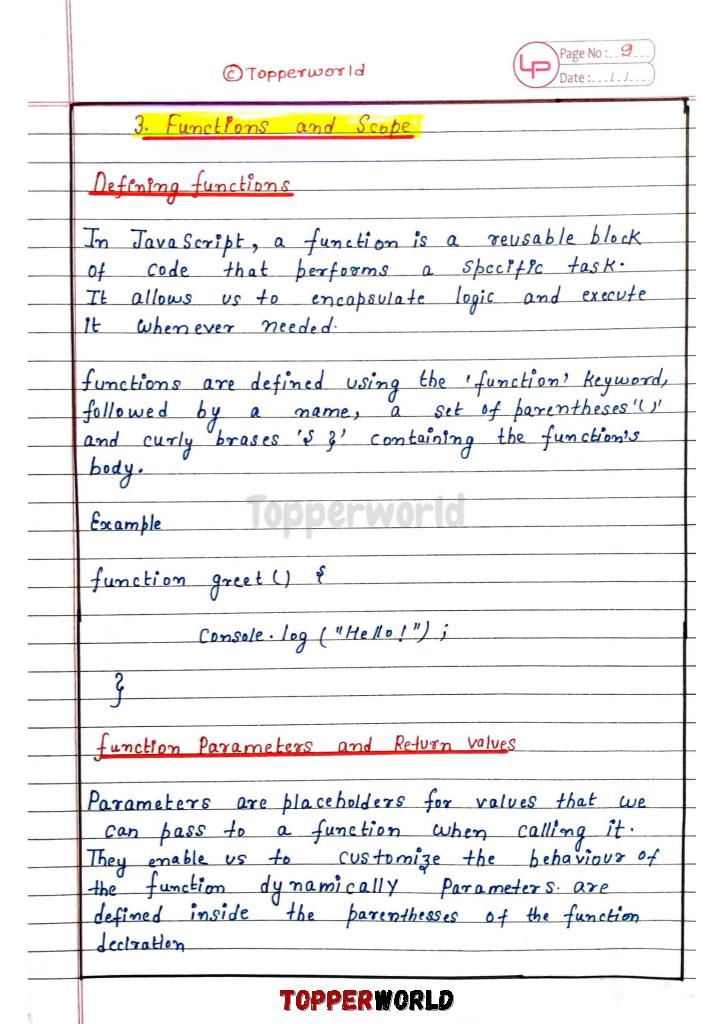 © Topperworld
LP
Page No: 9
Date:
3. Functions and Scope
Defining functions
In JavaScript, a function is a reusable block
of code that performs a specific task.
It allows us to encapsulate logic and execute
it whenever needed.
functions are defined using the 'function' keyword,
followed by a name, a set of parentheses '()'
and curly brases '{ }' containing the function's
body.
Topperworld
Example
function greet() {
Console.log ("Hello!");
}
function Parameters and Return values
Parameters are placeholders for values that we
can pass to a function when calling it.
They enable us to customize the behaviour of
the function dynamically Parameters. are
defined inside the parenthesses of the function
declration
TOPPERWORLD